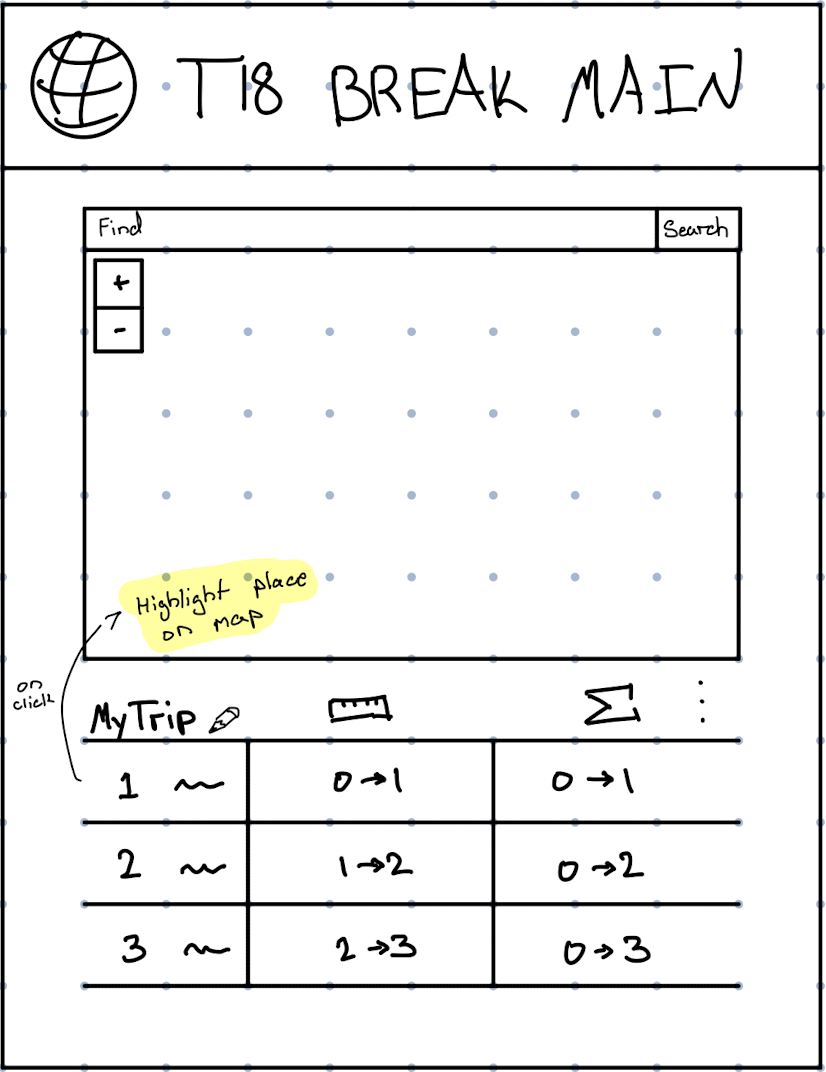 T18 BREAK MAIN
Find
Search
+
-
Highlight place
on map
on
click
MyTrip
1
0→1
0→1
2
1→2
0→2
3
2→3
0→3